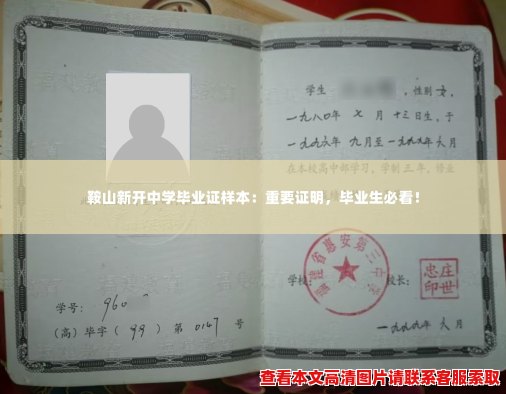 学生 ，性别 女，
一九八〇年 七 月 十三日生，于
一九九六年 九月至一九九九年 六月
在本校高中部学习，学制三年，修业
鞍山新开中学毕业证样本：重要证明，毕业生必看！
福建省惠安第三中学
学校 校长：
庄世忠印
学号： 960
（高）毕字（ 99 ）第 0147 号
一九九九年 六 月
查看本文高清图片请联系客服索取